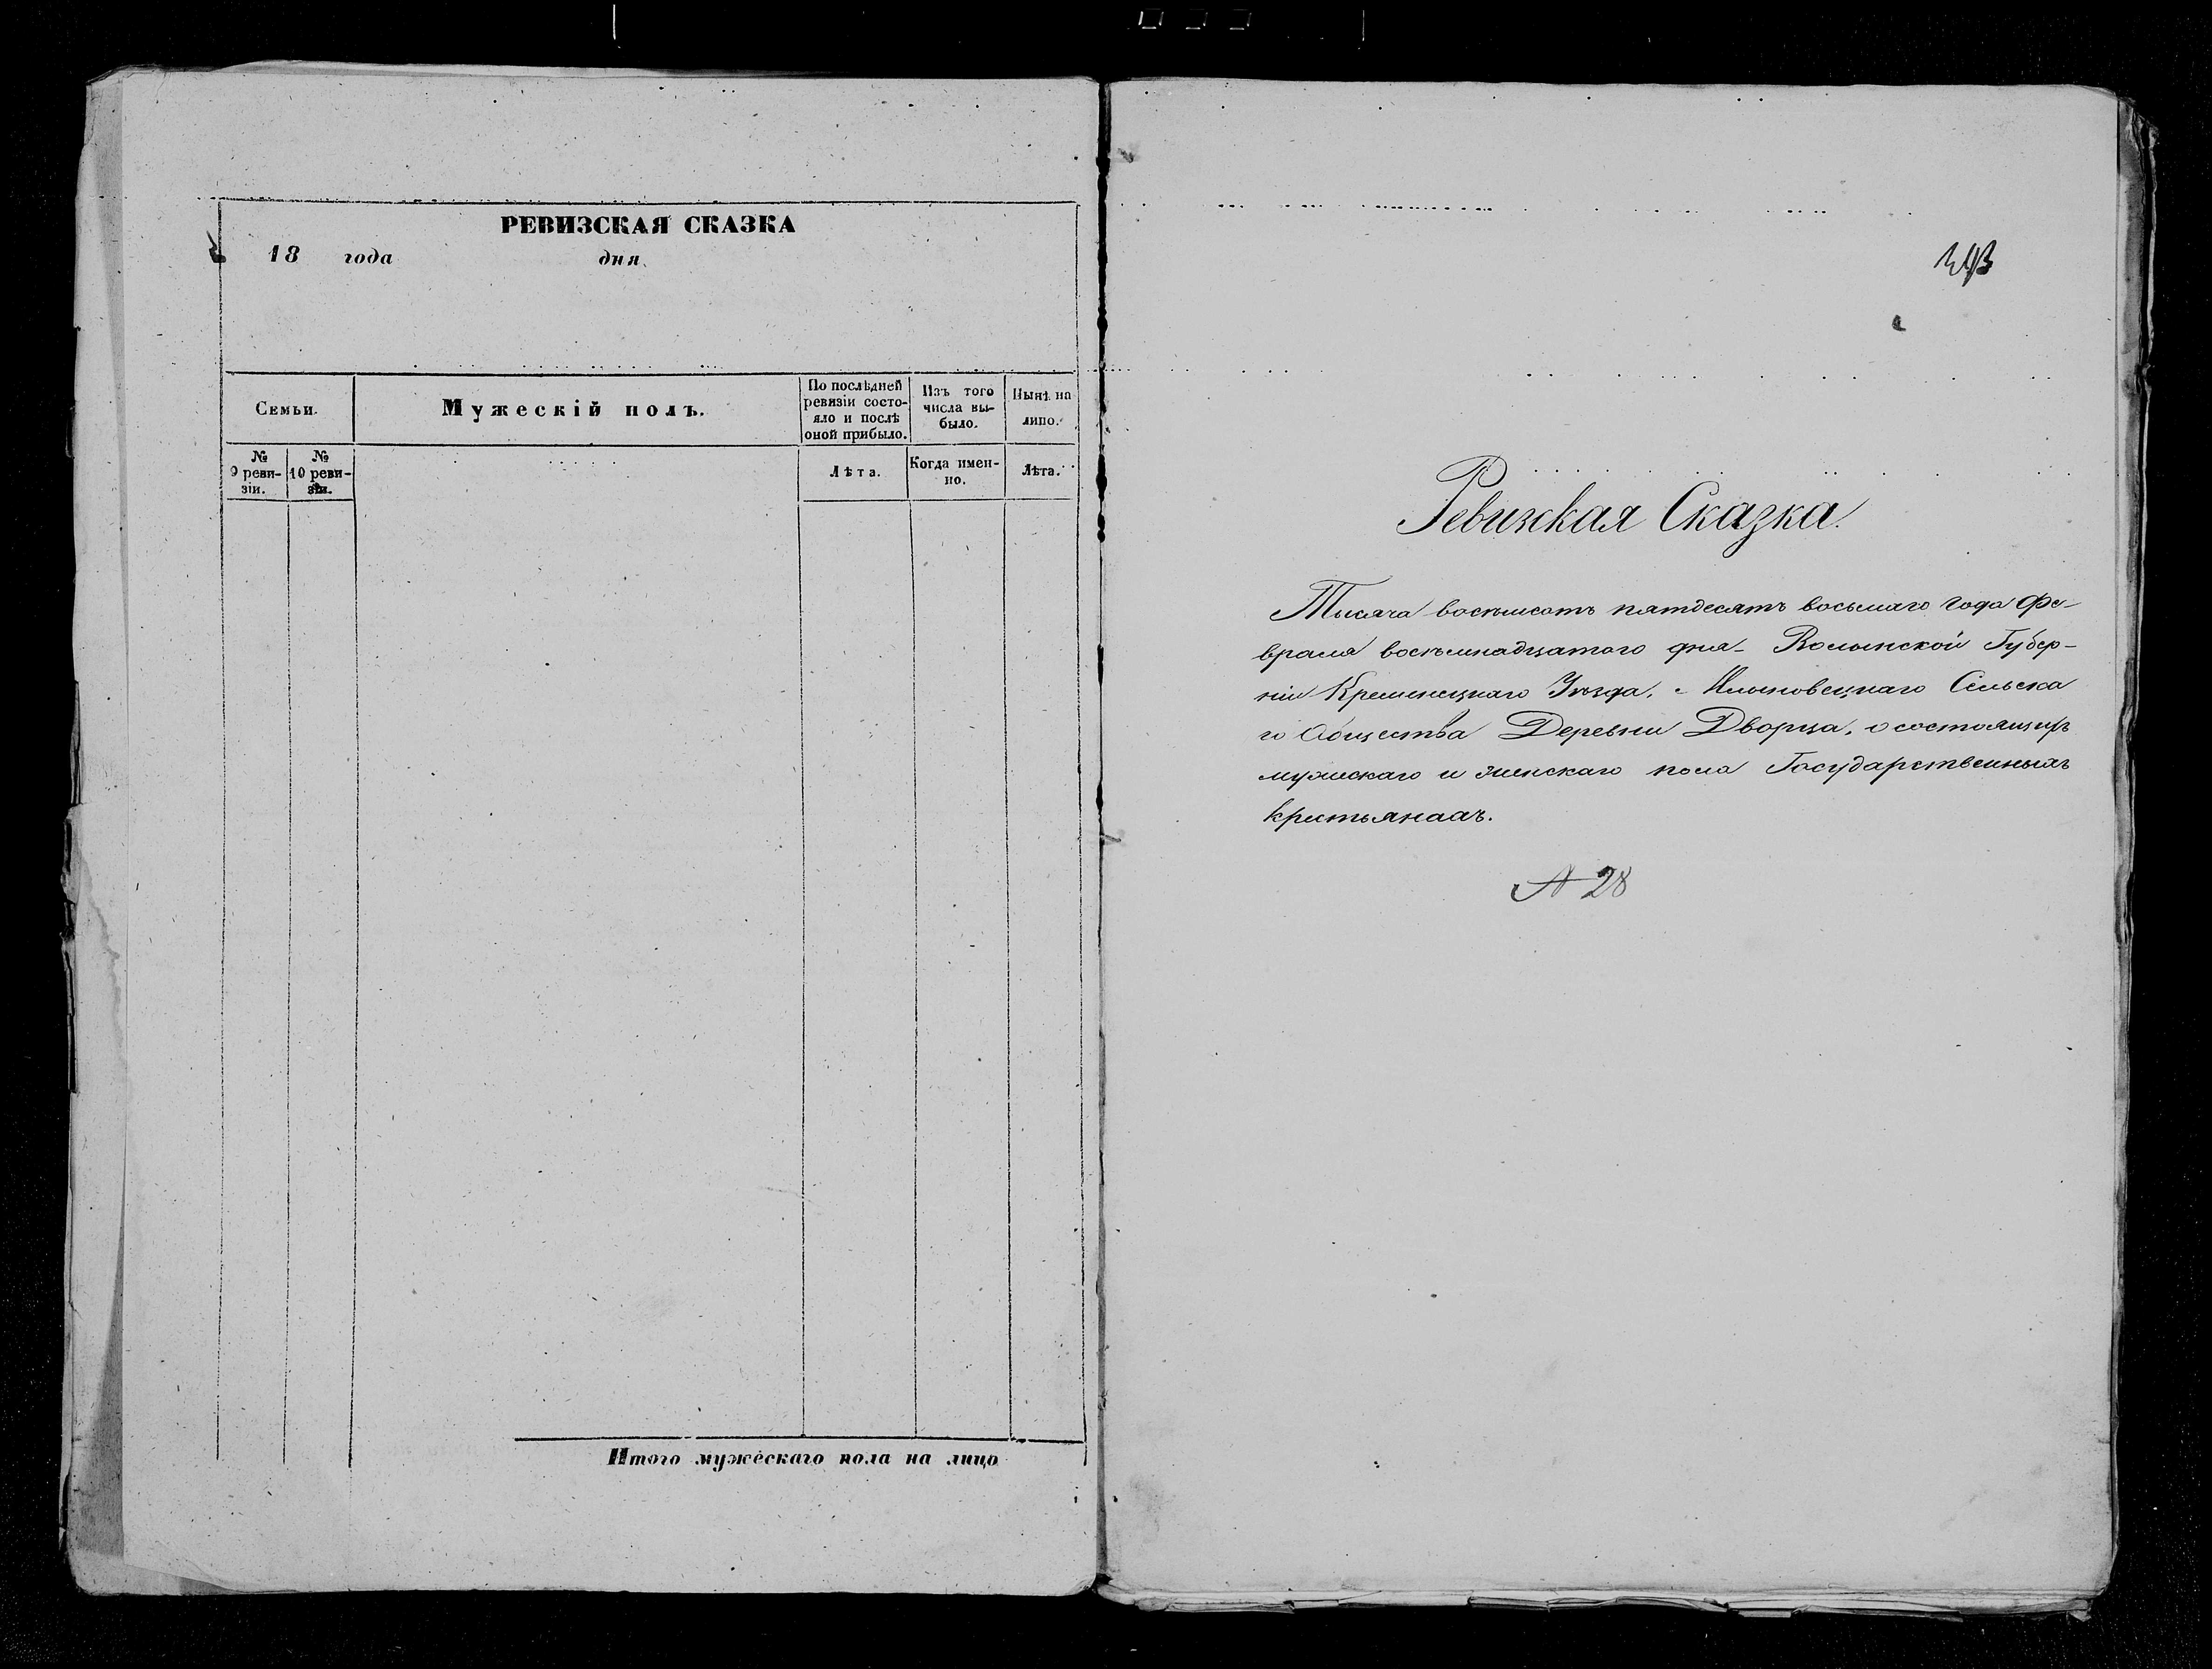 РЕВИЗСКАЯ СКАЗКА
18 года дня
Семьи.
Мужескій полъ.
По послѣдней
ревизіи состо-
яло и послѣ
оной прибыло.
Изъ того
числа вы-
было.
Нынѣ на
лицо.
№
9 реви-
зіи.
№
10 реви-
зіи.
Лѣта.
Когда имен-
но.
Лѣта.
Итого мужескаго пола на лицо
Ревизкая Сказка.
Тысяча восемьсотъ пятдесятъ восьмаго года Фе-
враля восемьнадцатого дня Волынской Губер-
ніи Кременецкаго Уѣзда, Сельска
го Общества Деревни Дворца, о состоящихъ
мужескаго и женскаго пола Государственныхъ
крестьянахъ.
№ 28